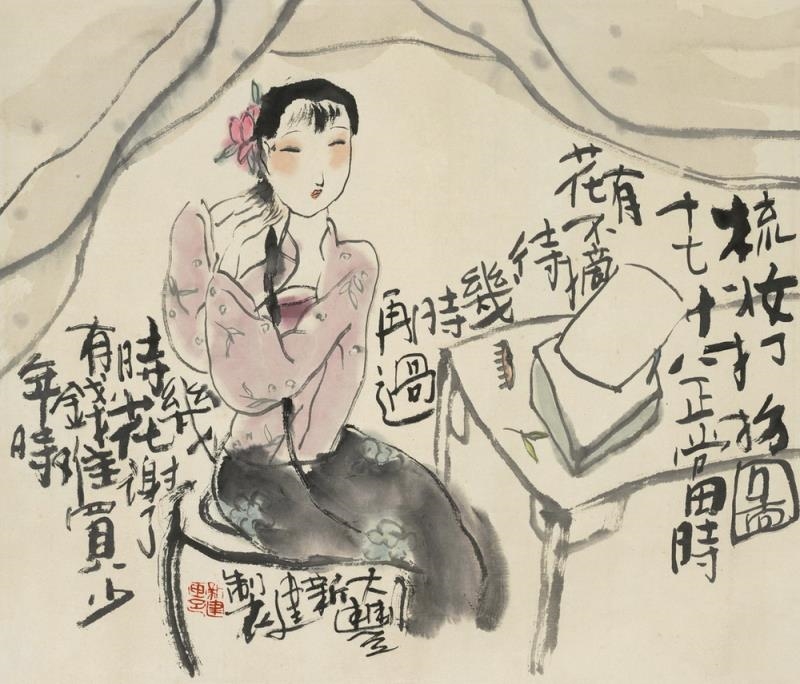 梳妆打扮圖
十七十八正當時
有
花不摘
待
幾
時
再過
幾
時花謝了
有錢難買少
年時
大豐
新
建
製